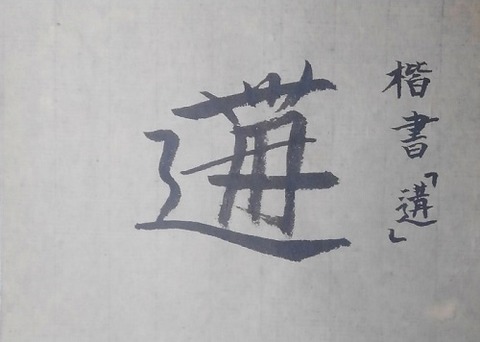 楷書「遘」
遘